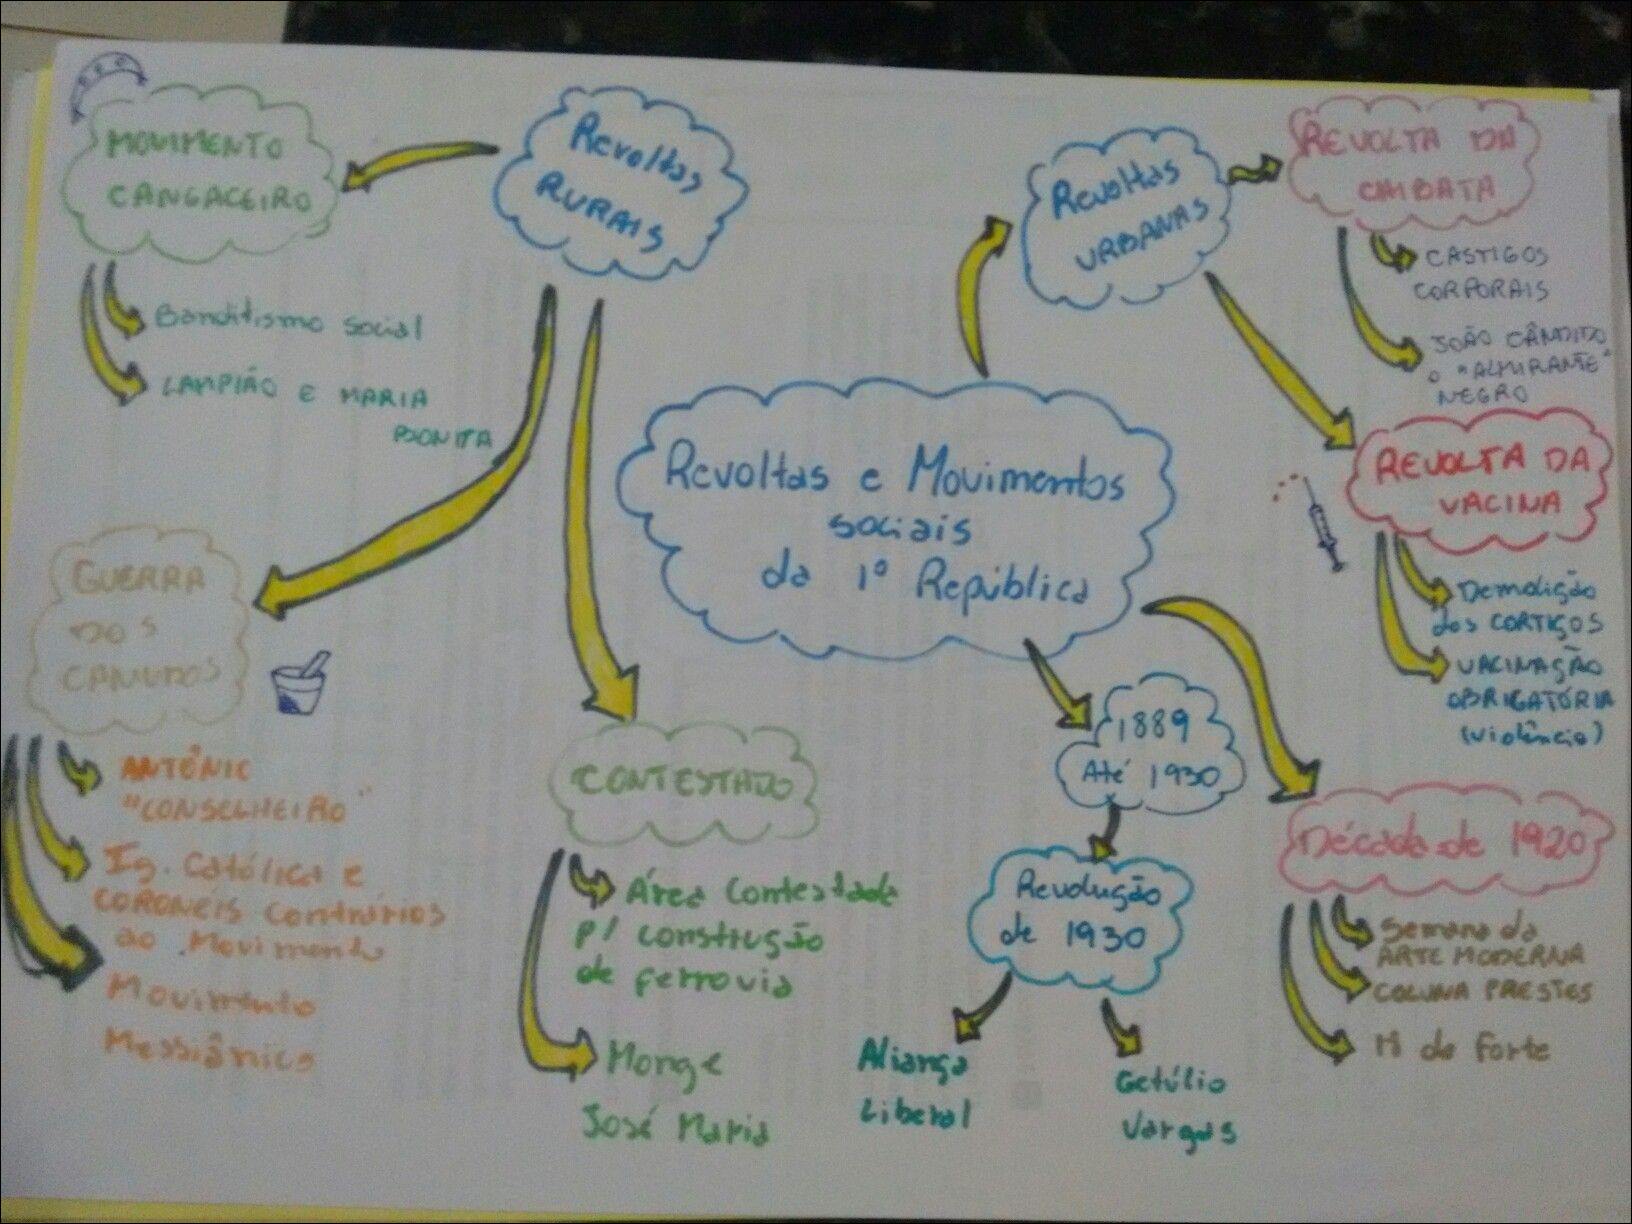 Revoltas e Movimentos
sociais
da 1º República
Revoltas
RURAIS
MOVIMENTO
CANGACEIRO
Banditismo social
LAMPIÃO E MARIA
BONITA
GUERRA
DOS
CANUDOS
ANTÔNIO
"CONSELHEIRO"
Ig. Católica e
CORONÉIS Contrários
ao Movimento
Movimento
Messiânico
CONTESTADO
Área Contestada
p/ construção
de ferrovia
Monge
José Maria
Revoltas
URBANAS
REVOLTA DA
CHIBATA
CASTIGOS
CORPORAIS
JOÃO CÂNDIDO
o "ALMIRANTE"
NEGRO
REVOLTA DA
VACINA
Demolição
dos CORTIÇOS
VACINAÇÃO
OBRIGATÓRIA
(violência)
1889
Até 1930
Revolução
de 1930
Aliança
Liberal
Getúlio
Vargas
Década de 1920
Semana da
ARTE MODERNA
COLUNA PRESTES
do Forte